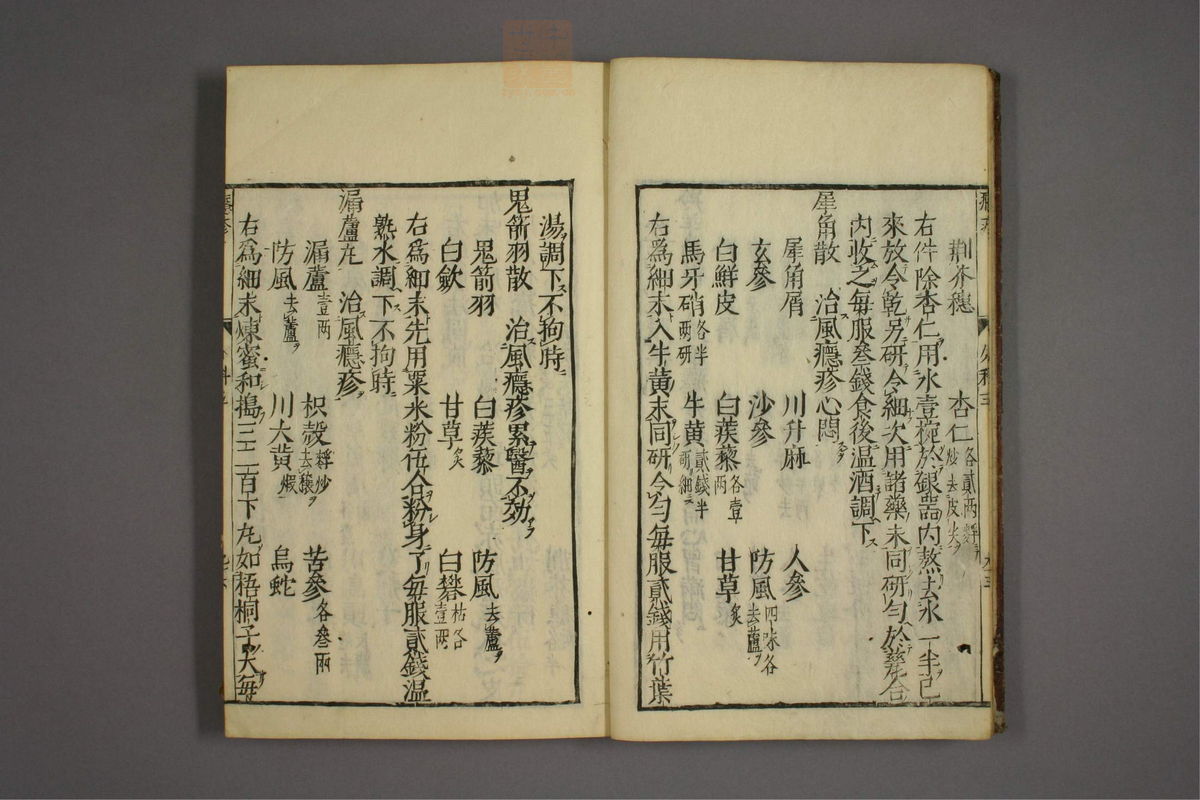 荆芥穗　杏仁各貳兩
右件除杏仁用水壹椀於銀器内熬去水一半已
來放令乾另研令細次用諸藥末同研勻於薬合
内收之每服叁錢食後温酒調下
犀角散　治風癮疹心悶
犀角屑　川升麻　人參
玄參　沙參　防風四味各去蘆
白鮮皮　白蒺藜各壹兩　甘草炙
馬牙硝各半兩研　牛黄貳錢半研細
右爲細末入牛黄末同研令勻每服貳錢用竹葉
湯調下不拘時
鬼箭羽散　治風癮疹累醫不効
鬼箭羽　白蒺藜　防風去蘆
白歛　甘草炙　白礬枯各壹兩
右爲細末先用粟米粉伍合粉身了每服貳錢温
熟水調下不拘時
漏蘆丸　治風癮疹
漏蘆壹兩　枳殼麩炒去穰　苦參各叁兩
防風去蘆　川大黄煨　烏蛇
右爲細末煉蜜和搗三二百下丸如梧桐子大每